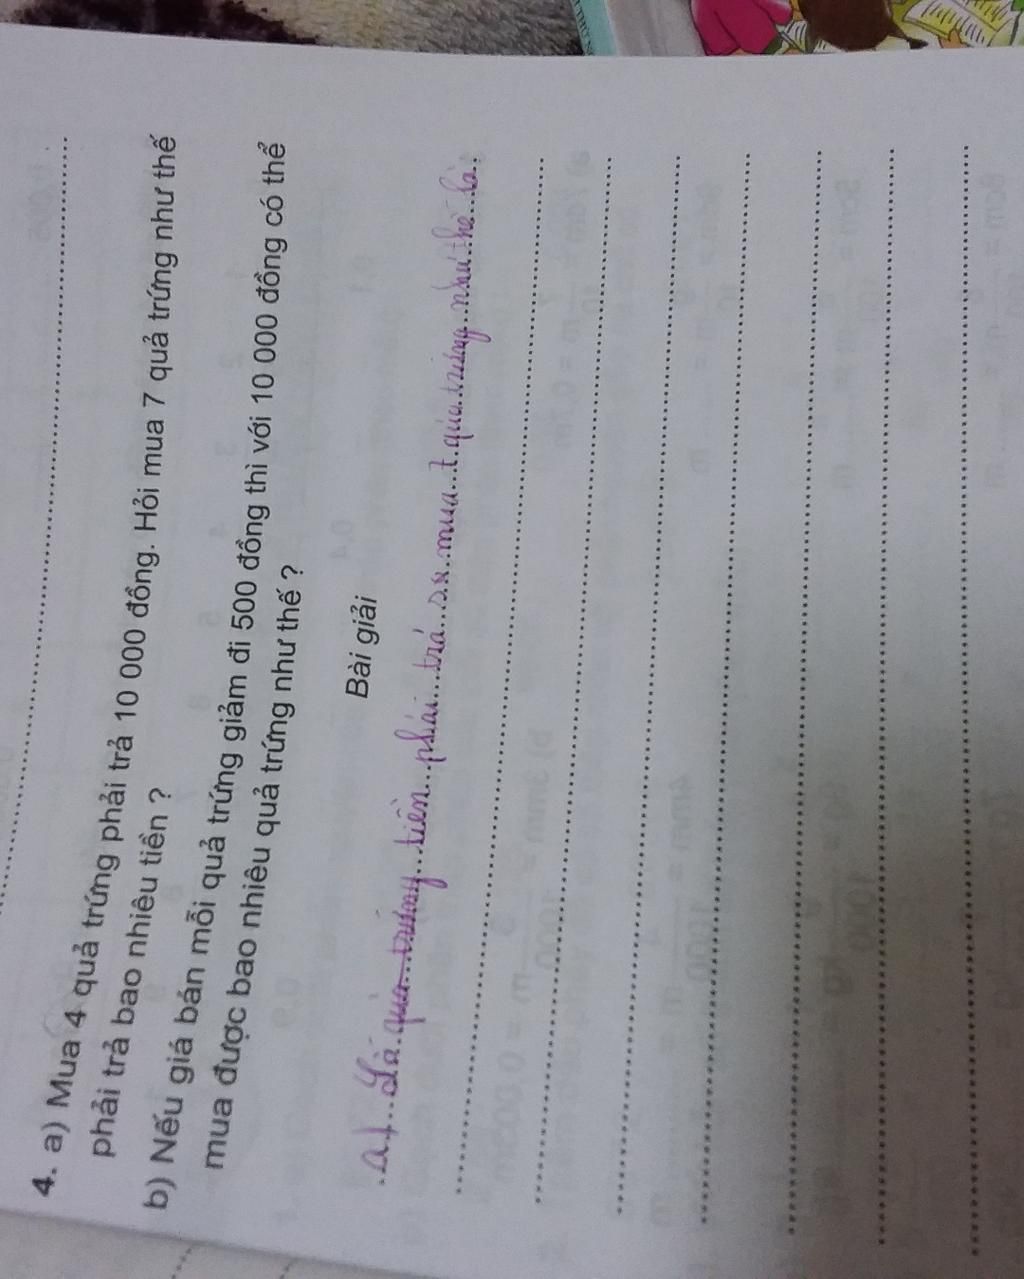 4. a) Mua 4 quả trứng phải trả 10 000 đồng. Hỏi mua 7 quả trứng như thế
phải trả bao nhiêu tiền ?
b) Nếu giá bán mỗi quả trứng giảm đi 500 đồng thì với 10 000 đồng có thể
mua được bao nhiêu quả trứng như thế ?
Bài giải
a) tiền phải trả mua 7 quả trứng như thế là: